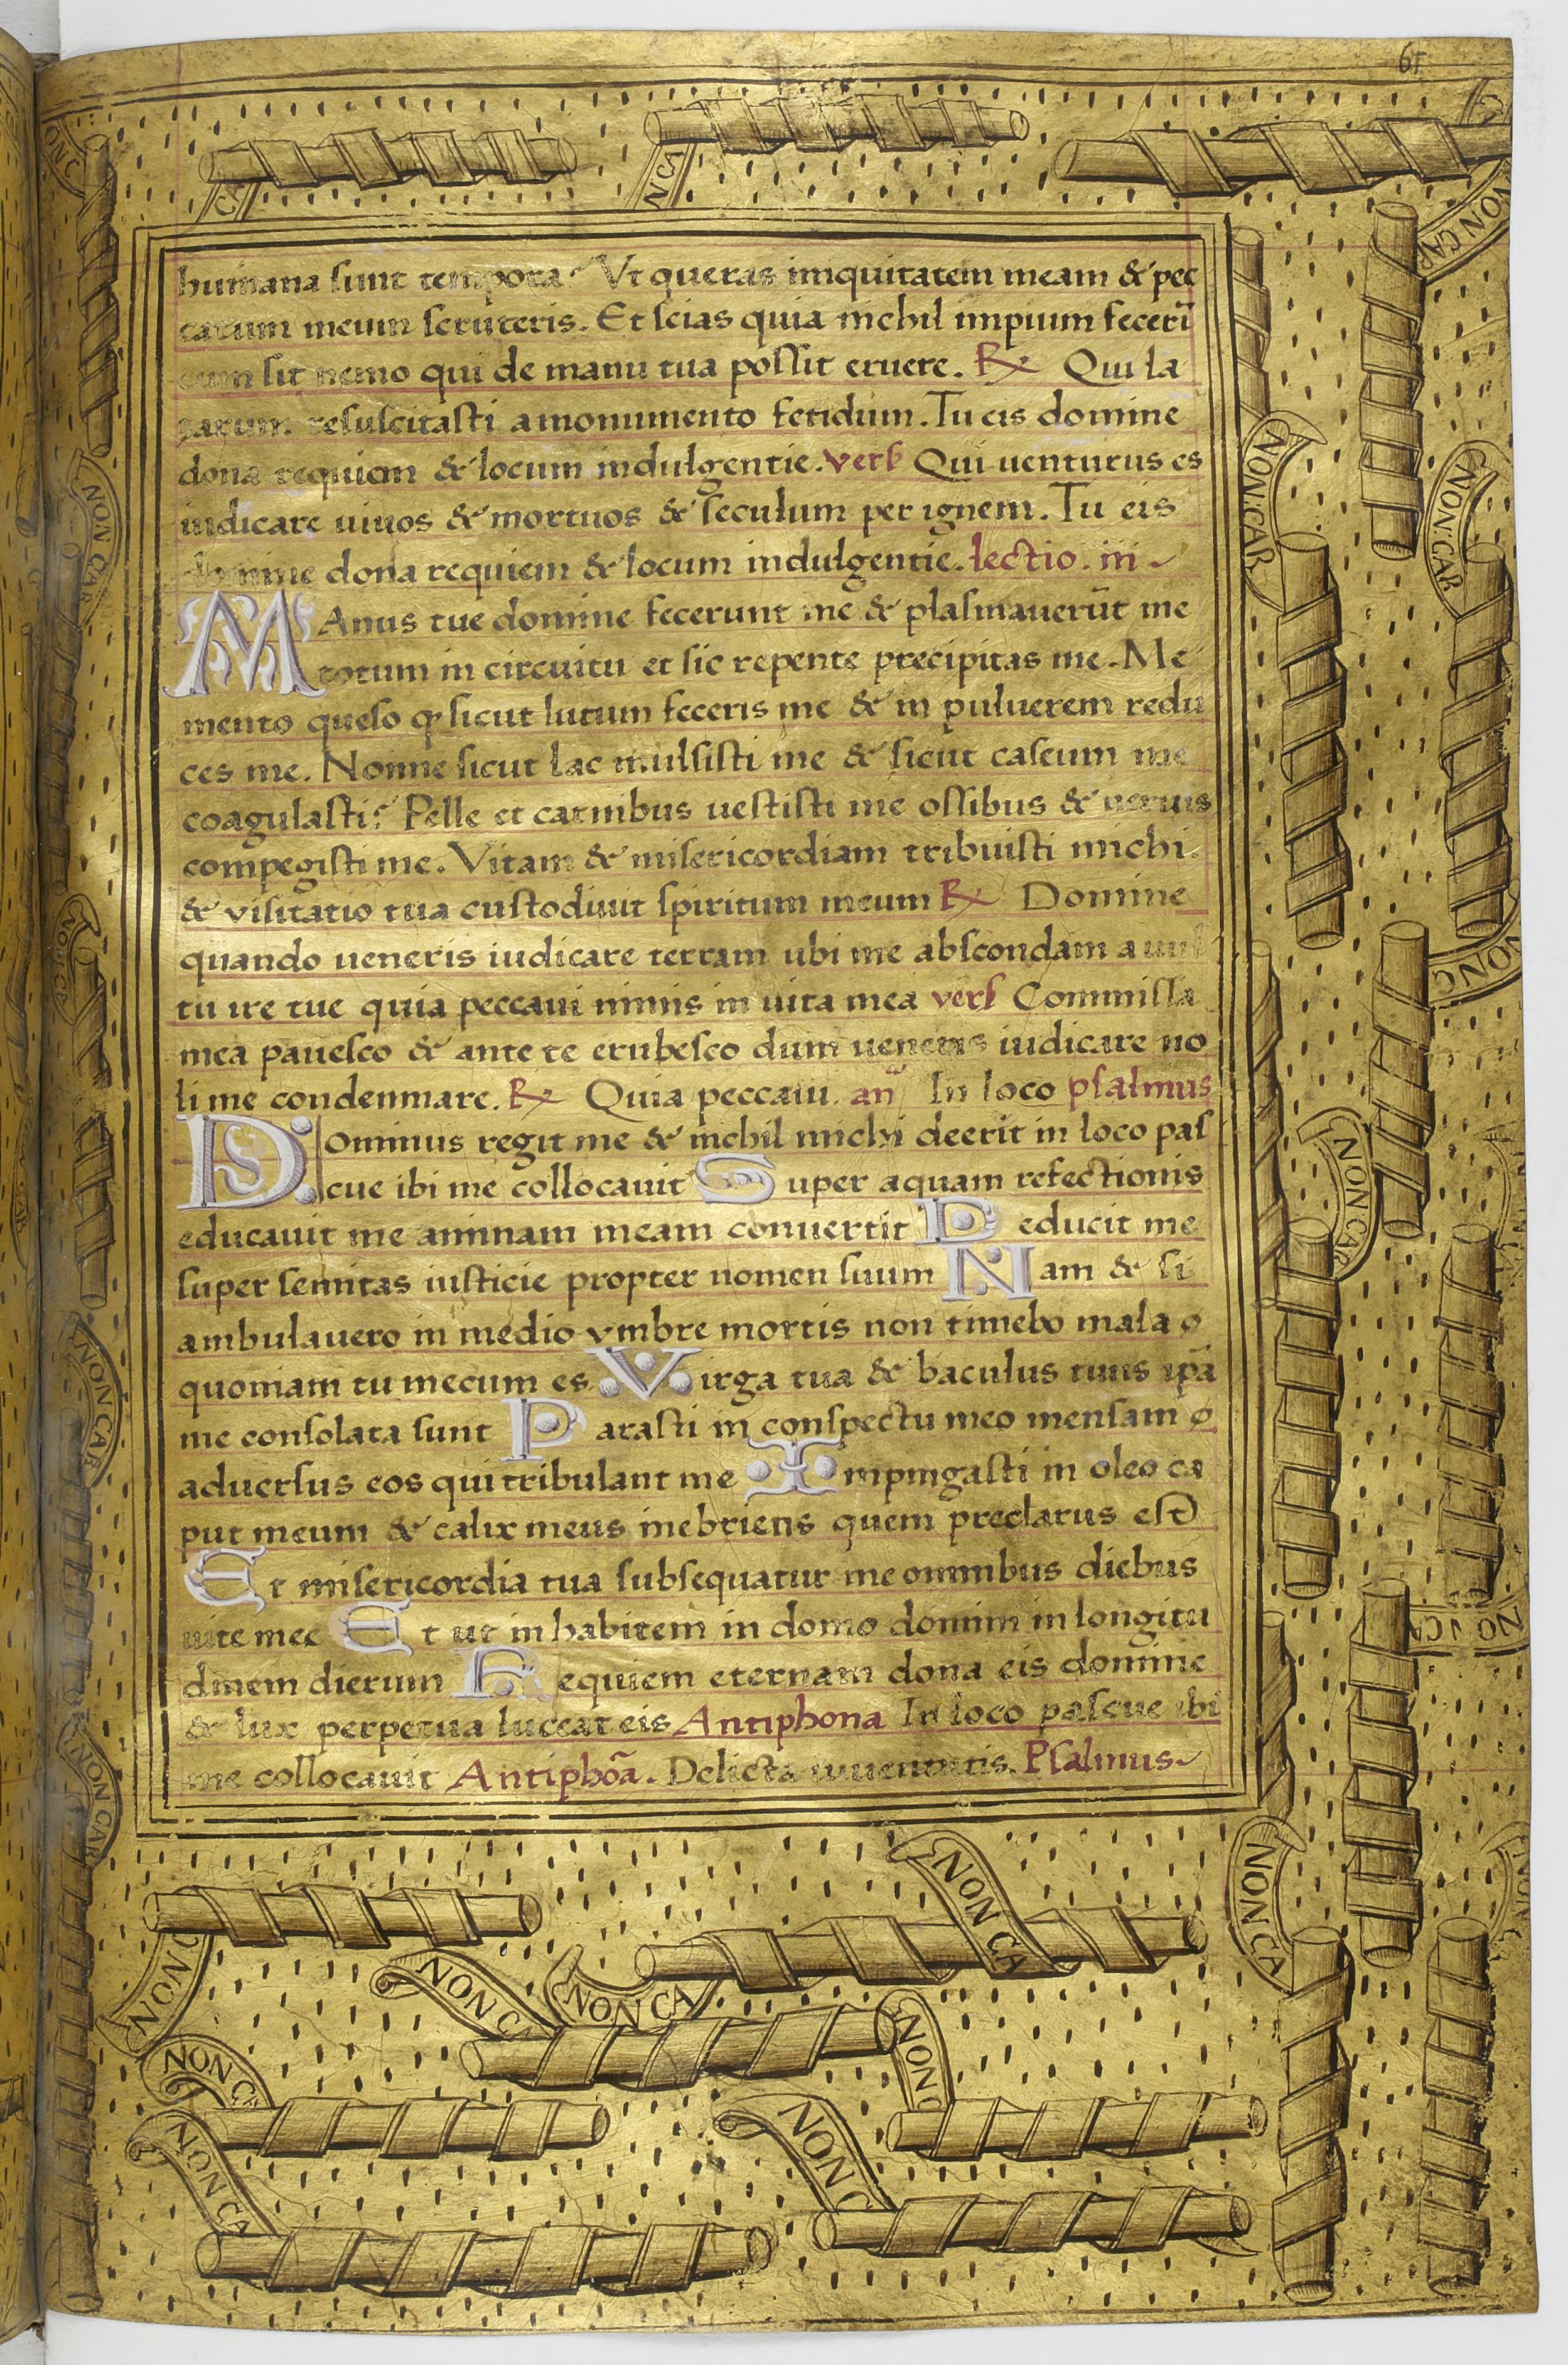 61
humana sunt tempora? Vt queras iniquitatem meam & pec
catum meum scruteris. Et scias quia nichil impium fecerī
cum sit nemo qui de manu tua possit eruere. ℟ Qui la
zarum resuscitasti a monumento fetidum. Tu eis domine
dona requiem & locum indulgentie. vers Qui uenturus es
iudicare uiuos & mortuos & seculum per ignem. Tu eis
domine dona requiem & locum indulgentie. lectio. iii
MAnus tue domine fecerunt me & plasmauerūt me
totum in circuitu et sic repente precipitas me. Me
mento queso ꝙ sicut lutum feceris me & in puluerem redu
ces me. Nonne sicut lac mulsisti me & sicut caseum me
coagulasti? Pelle et carnibus uestisti me ossibus & neruis
compegisti me. Vitam & misericordiam tribuisti michi.
& visitatio tua custodiuit spiritum meum ℟ Domine
quando ueneris iudicare terram ubi me abscondam a uul
tu ire tue quia peccaui nimis in uita mea vers Commissa
mea pauesco & ante te erubesco dum ueneris iudicare no
li me condemnare. ℟ Quia peccaui. an In loco psalmus
DOminus regit me & nichil michi deerit in loco pas
cue ibi me collocauit Super aquam refectionis
educauit me animam meam conuertit Deducit me
super semitas iusticie propter nomen suum Nam & si
ambulauero in medio vmbre mortis non timebo mala
quoniam tu mecum es. Virga tua & baculus tuus ipā
me consolata sunt Parasti in conspectu meo mensam
aduersus eos qui tribulant me Impingasti in oleo ca
put meum & calix meus inebriens quem preclarus est
Et misericordia tua subsequatur me omnibus diebus
uite mee Et ut inhabitem in domo domini in longitu
dinem dierum Requiem eternam dona eis domine
& lux perpetua luceat eis Antiphona In loco pascue ibi
me collocauit Antiphōa. Delicta iuuentutis. Psalmus
NON CA
NON CA
NON CA
NON C
NON CA
NON C
NON CA
NON C
NON CA
NON CAR
NON CAR
NON C
NON CAR
NON CA
NON CAR
NON CAR
NON CAR